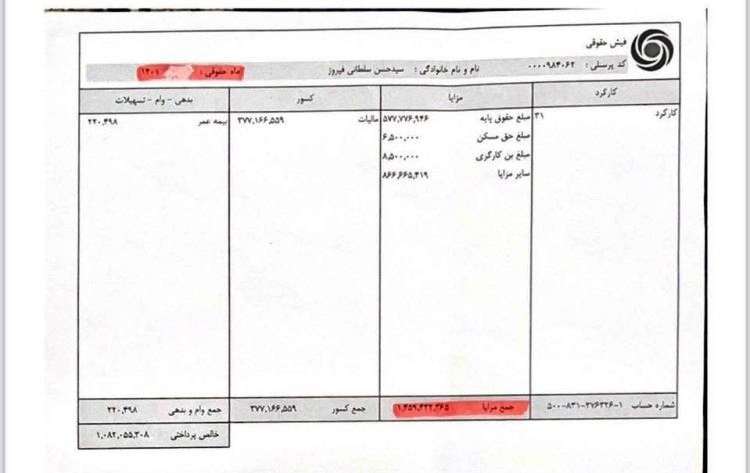 فیش حقوقی
کد پرسنلی : ۰۰۰۰۹۸۴۰۶۲ نام و نام خانوادگی : سیدحسن سلطانی فیروز ماه حقوقی : ۱۴۰۱
کارکرد مزایا کسور بدهی - وام - تسهیلات
کارکرد ۳۱ مبلغ حقوق پایه ۵۷۷,۷۷۶,۹۴۶ مالیات ۳۷۷,۱۶۶,۵۵۹ بیمه عمر ۲۲۰,۴۹۸
مبلغ حق مسکن ۶,۵۰۰,۰۰۰
مبلغ بن کارگری ۸,۵۰۰,۰۰۰
سایر مزایا ۸۶۶,۶۶۵,۴۱۹
شماره حساب ۱-۲۷۶۳۲۶-۸۳۱-۵۰۰ جمع مزایا ۱,۴۵۹,۴۴۲,۳۶۵ جمع کسور ۳۷۷,۱۶۶,۵۵۹ جمع وام و بدهی ۲۲۰,۴۹۸
خالص پرداختی ۱,۰۸۲,۰۵۵,۳۰۸